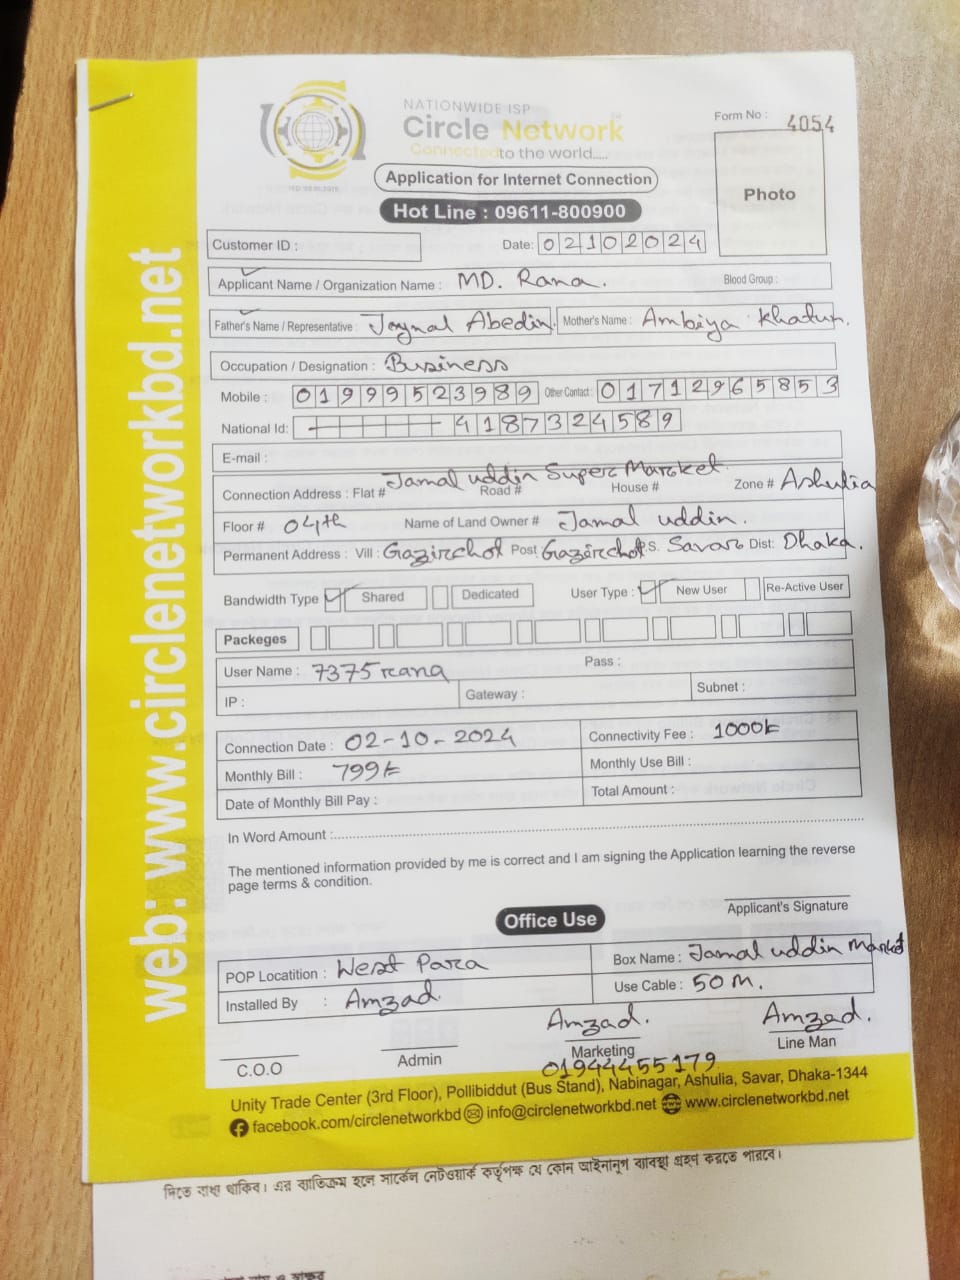 web: www.circlenetworkbd.net
NATIONWIDE ISP
Circle Network
Connected to the world.....
Form No : 4054
Application for Internet Connection
Hot Line : 09611-800900
Photo
Customer ID :
Date: 02102024
Applicant Name / Organization Name : MD. Rana. Blood Group :
Father's Name / Representative : Joynal Abedin. Mother's Name : Ambiya Khatun.
Occupation / Designation : Business
Mobile : 01999523989 Other Contact : 01712965853
National Id: 4187324589
E-mail :
Jamal uddin Super Market.
Connection Address : Flat # Road # House # Zone # Ashulia
Floor # 04th Name of Land Owner # Jamal uddin.
Permanent Address : Vill : Gazirchot Post Gazirchot S. Savar Dist: Dhaka.
Bandwidth Type Shared Dedicated User Type : New User Re-Active User
Packeges
User Name : 7375rana Pass :
IP : Gateway : Subnet :
Connection Date : 02-10-2024 Connectivity Fee : 1000/=
Monthly Bill : 799/= Monthly Use Bill :
Date of Monthly Bill Pay : Total Amount :
In Word Amount :
The mentioned information provided by me is correct and I am signing the Application learning the reverse
page terms & condition.
Applicant's Signature
Office Use
POP Locatition : West Para Box Name : Jamal uddin Market
Installed By : Amzad Use Cable : 50 M.
Amzad. Amzad.
C.O.O Admin Marketing Line Man
01944455179
Unity Trade Center (3rd Floor), Pollibiddut (Bus Stand), Nabinagar, Ashulia, Savar, Dhaka-1344
facebook.com/circlenetworkbd info@circlenetworkbd.net www.circlenetworkbd.net
দিতে বাধ্য থাকিব। এর ব্যতিক্রম হলে সার্কেল নেটওয়ার্ক কর্তৃপক্ষ যে কোন আইনানুগ ব্যবস্থা গ্রহণ করতে পারবে।